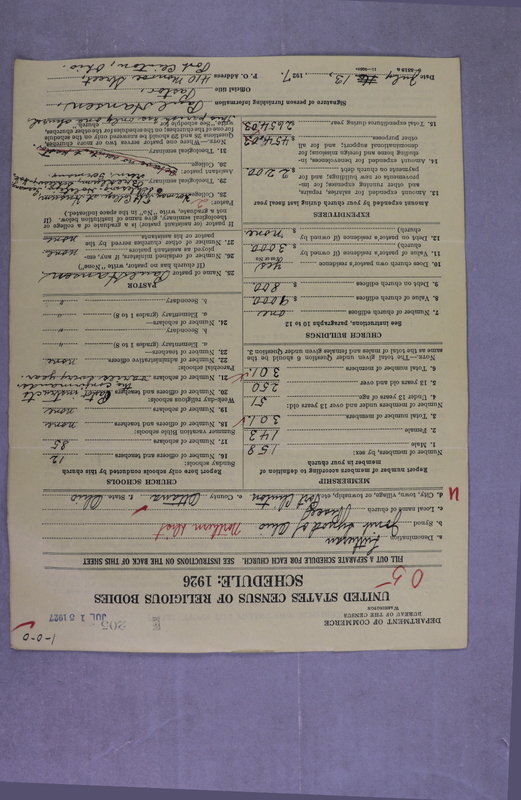 1-0-0
DEPARTMENT OF COMMERCE
BUREAU OF THE CENSUS
WASHINGTON
205
JUL 15 1927
UNITED STATES CENSUS OF RELIGIOUS BODIES
SCHEDULE: 1926
05
FILL OUT A SEPARATE SCHEDULE FOR EACH CHURCH. SEE INSTRUCTIONS ON THE BACK OF THIS SHEET
a. Denomination Lutheran
b. Synod Joint Synod of Ohio Northern Dist
c. Local name of church
d. City, town, village, or township, etc. Port Clinton e. County Ottawa f. State Ohio
MEMBERSHIP
Report number of members according to definition of member in your church
Number of members, by sex:
1. Male 158
2. Female 143
3. Total number of members 301
Number of members under and over 13 years old:
4. Under 13 years of age 51
5. 13 years old and over 250
6. Total number of members 301
NOTE.—The total given under Question 6 should be the same as the total of males and females given under Question 3.
CHURCH BUILDINGS
See instructions, paragraphs 10 to 12
7. Number of church edifices one
8. Value of church edifices $ 9000
9. Debt on church edifices $ 800
10. Does church own pastor's residence yes
11. Value of pastor's residence (if owned by church) $ 3000
12. Debt on pastor's residence (if owned by church) $ none
EXPENDITURES
Amount expended by your church during last fiscal year
13. Amount expended for salaries, repairs, and other running expenses; for improvements or new buildings, and for payments on church debt $ 2200
14. Amount expended for benevolences, including home and foreign missions; for denominational support; and for all other purposes $ 454.03
15. Total expenditures during year $ 2654.03
CHURCH SCHOOLS
Report here only schools conducted by this church
Sunday schools:
16. Number of officers and teachers 12
17. Number of scholars 85
Summer vacation Bible schools:
18. Number of officers and teachers none
19. Number of scholars none
Week-day religious schools:
20. Number of officers and teachers Pastor instructs the confirmands
21. Number of scholars varies every year.
Parochial schools:
22. Number of administrative officers none
23. Number of teachers—
a. Elementary (grades 1 to 8) "
b. Secondary "
24. Number of scholars—
a. Elementary (grades 1 to 8) "
b. Secondary "
PASTOR
25. Name of pastor
(If church has no pastor, write "None")
26. Number of ordained ministers, if any, employed as assistant pastors none
27. Number of other churches served by the pastor or his assistants none
If pastor or assistant pastor is a graduate of a college or theological seminary, give name of institution below. (If not a graduate, write "No" in the space indicated.)
Pastor:
28. College
29. Theological seminary
Assistant pastor:
30. College
31. Theological seminary
NOTE.—Where one pastor serves two or more churches, Questions 28 and 29 should be answered only on the schedule for one of the churches; on the schedules for the other churches, write "See schedule for church."
This parish has only one church
Signature of person furnishing information
Official title Pastor.
P. O. Address 410 Monroe Street, Port Clinton, Ohio.
Date July 13, 1927.